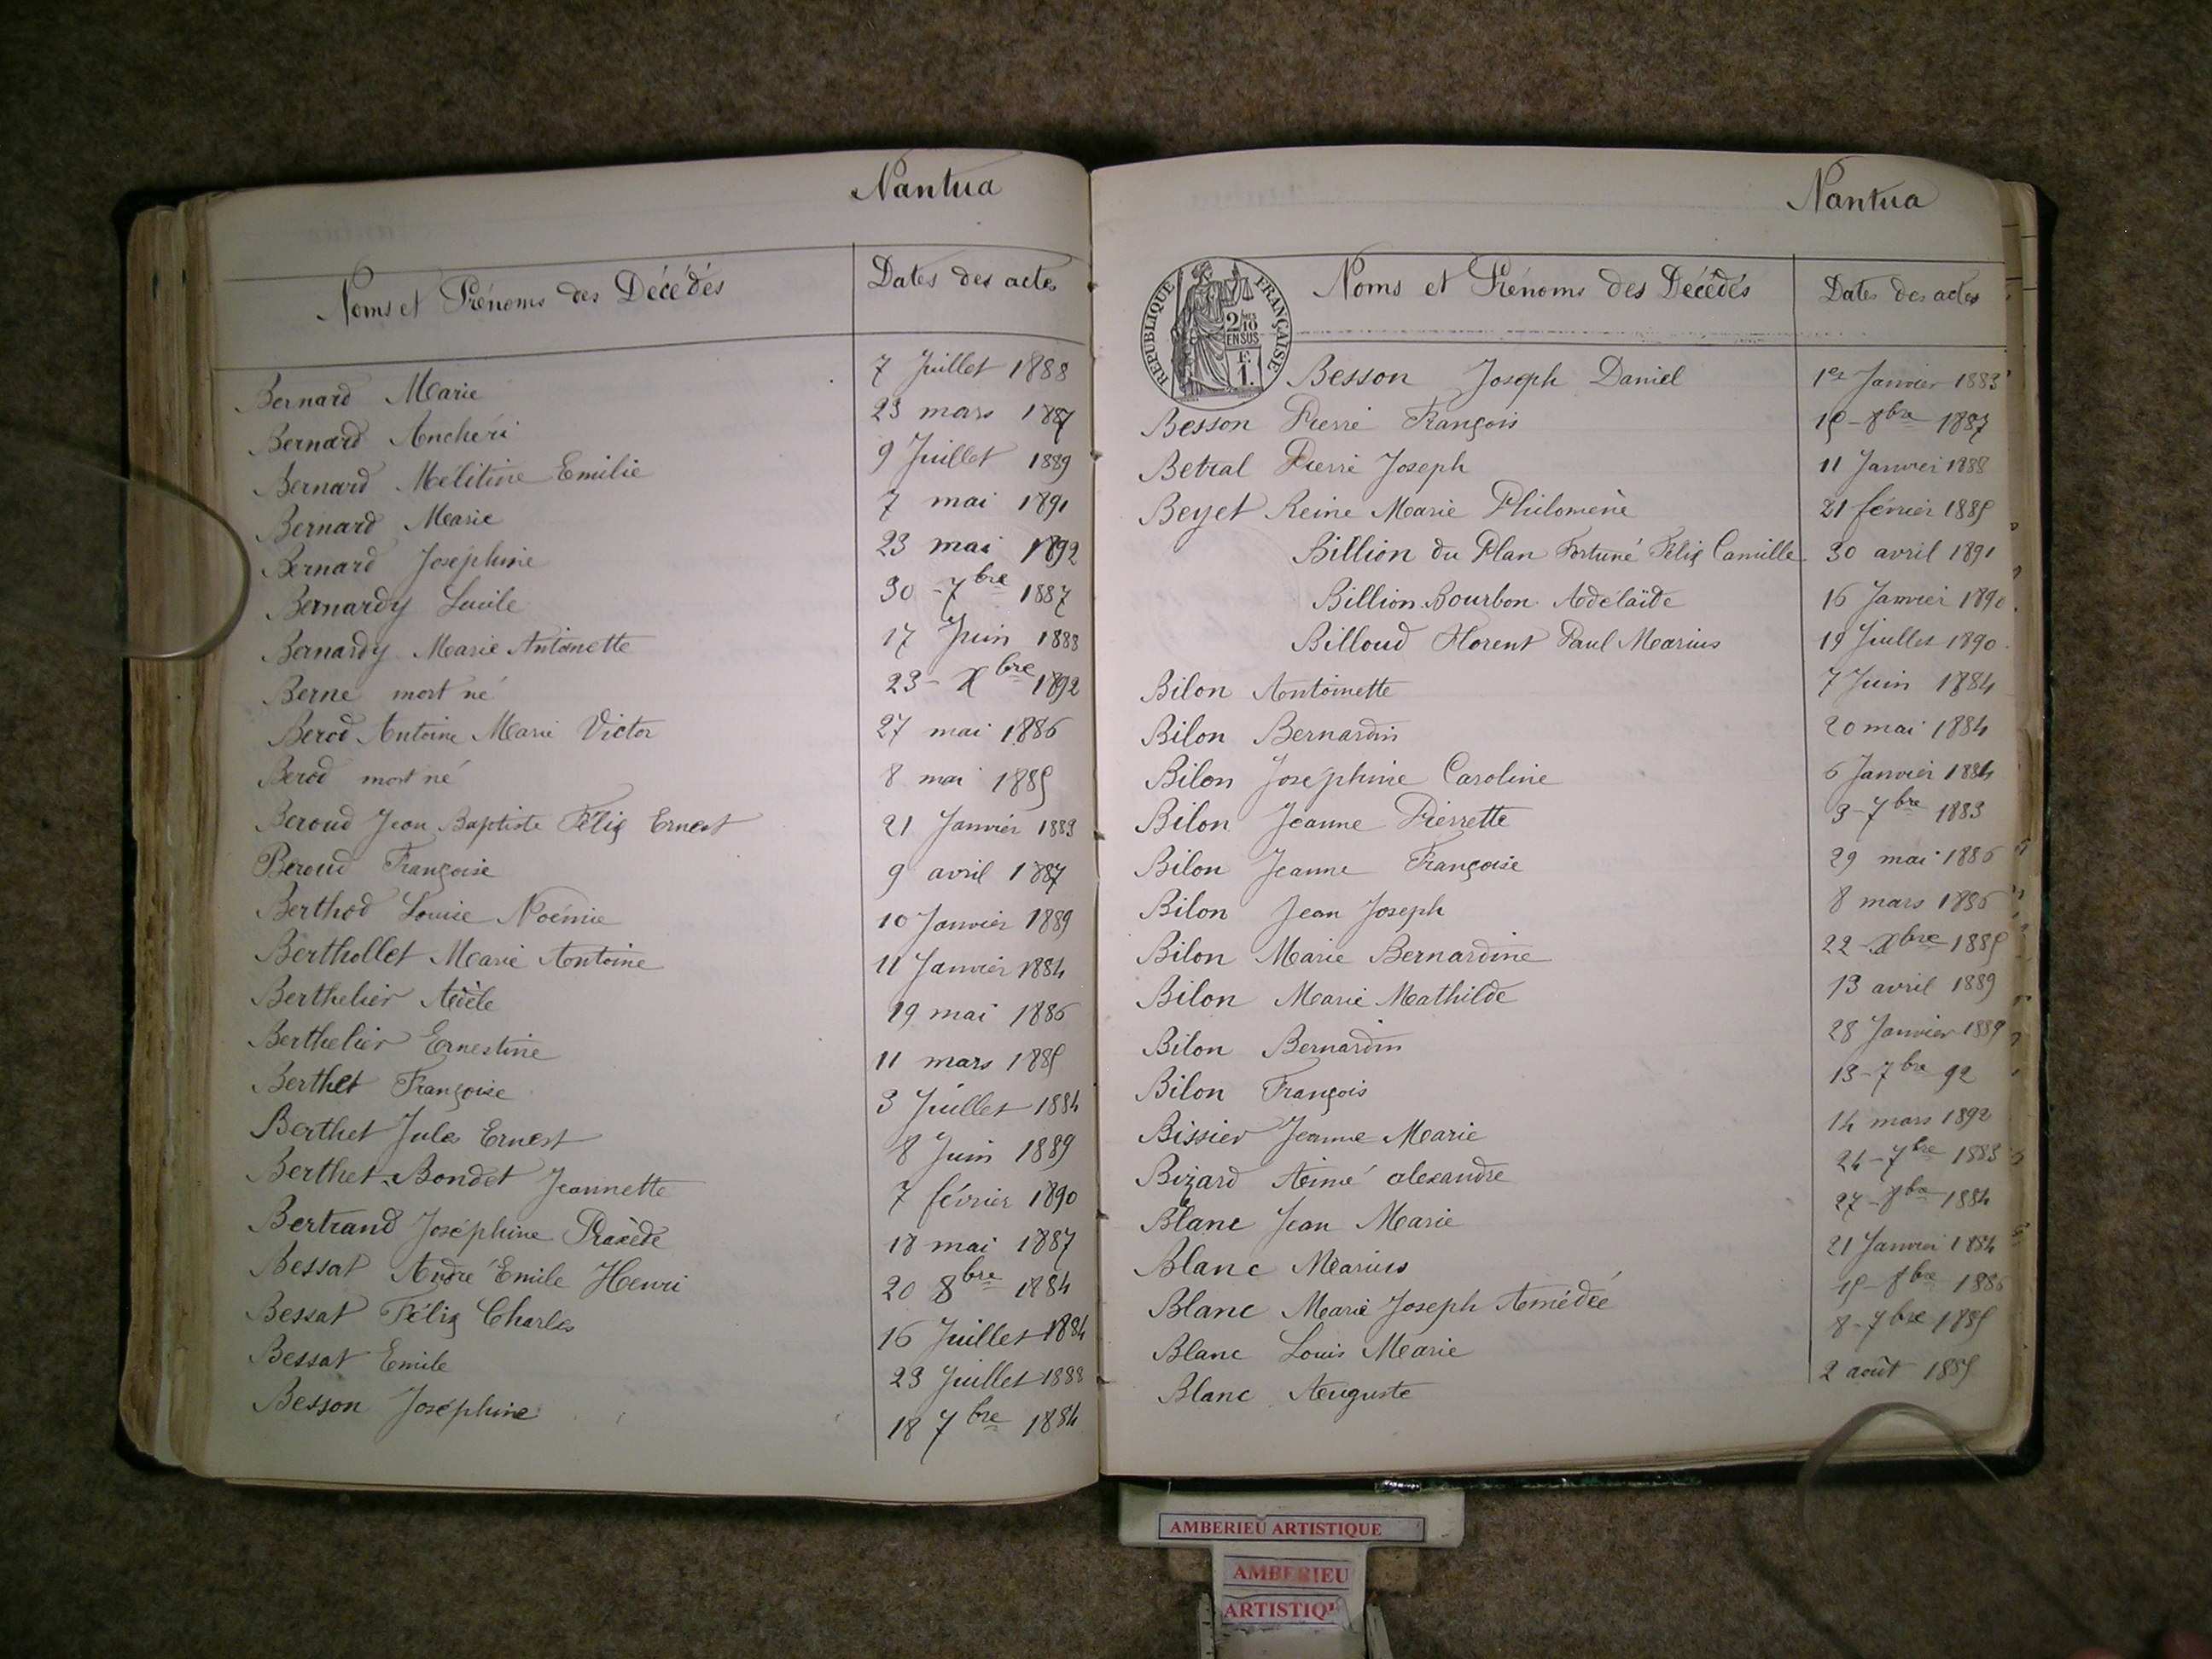 Nantua
Noms et Prénoms des Décédés Dates des actes
Bernard Marie 7 Juillet 1888
Bernard Anchéri 23 mars 1887
Bernard Mélitine Emilie 9 Juillet 1889
Bernard Marie 7 mai 1891
Bernard Joséphine 23 mai 1892
Bernardy Lucile 30 - 7bre 1887
Bernardy Marie Antoinette 17 Juin 1888
Berne mort né 23 - Xbre 1892
Berod Antoine Marie Victor 27 mai 1886
Berod mort né 8 mai 1885
Beroud Jean Baptiste Félix Ernest 21 Janvier 1889
Beroud Françoise 9 avril 1887
Berthod Louise Noémie 10 Janvier 1889
Berthollet Marie Antoine 11 Janvier 1884
Berthelier Adèle 19 mai 1886
Berthelier Ernestine 11 mars 1885
Berthet Françoise 3 Juillet 1884
Berthet Jules Ernest 8 Juin 1889
Berthet-Bondet Jeannette 7 février 1890
Bertrand Joséphine Praxède 18 mai 1887
Bessat André Emile Henri 20 8bre 1884
Bessat Félix Charles 16 Juillet 1884
Bessat Emile 23 Juillet 1888
Besson Joséphine 18 7bre 1884
Nantua
RÉPUBLIQUE FRANÇAISE
2/10 EN SUS
F. 1.
Noms et Prénoms des Décédés Dates des actes
Besson Joseph Daniel 1er Janvier 1883
Besson Pierre François 15 - 8bre 1887
Betral Pierre Joseph 11 Janvier 1888
Beyet Reine Marie Philomène 21 février 1885
Billion du Plan Fortuné Félix Camille 30 avril 1891
Billion-Bourbon Adélaïde 16 Janvier 1890
Billoud Florent Paul Marius 19 Juillet 1890
Bilon Antoinette 7 Juin 1884
Bilon Bernardin 20 mai 1884
Bilon Joséphine Caroline 6 Janvier 1884
Bilon Jeanne Pierrette 3 - 7bre 1883
Bilon Jeanne Françoise 29 mai 1886
Bilon Jean Joseph 8 mars 1886
Bilon Marie Bernardine 22 - Xbre 1885
Bilon Marie Mathilde 13 avril 1889
Bilon Bernardin 28 Janvier 1889
Bilon François 13 - 7bre 92
Bissier Jeanne Marie 14 mars 1892
Bizard Aimé alexandre 24 - 7bre 1883
Blanc Jean Marie 27 - 8bre 1884
Blanc Marius 21 Janvier 1884
Blanc Marie Joseph Amédée 15 - 8bre 1886
Blanc Louis Marie 8 - 7bre 1885
Blanc Auguste 2 août 1885
AMBERIEU ARTISTIQUE
AMBERIEU
ARTISTIQU